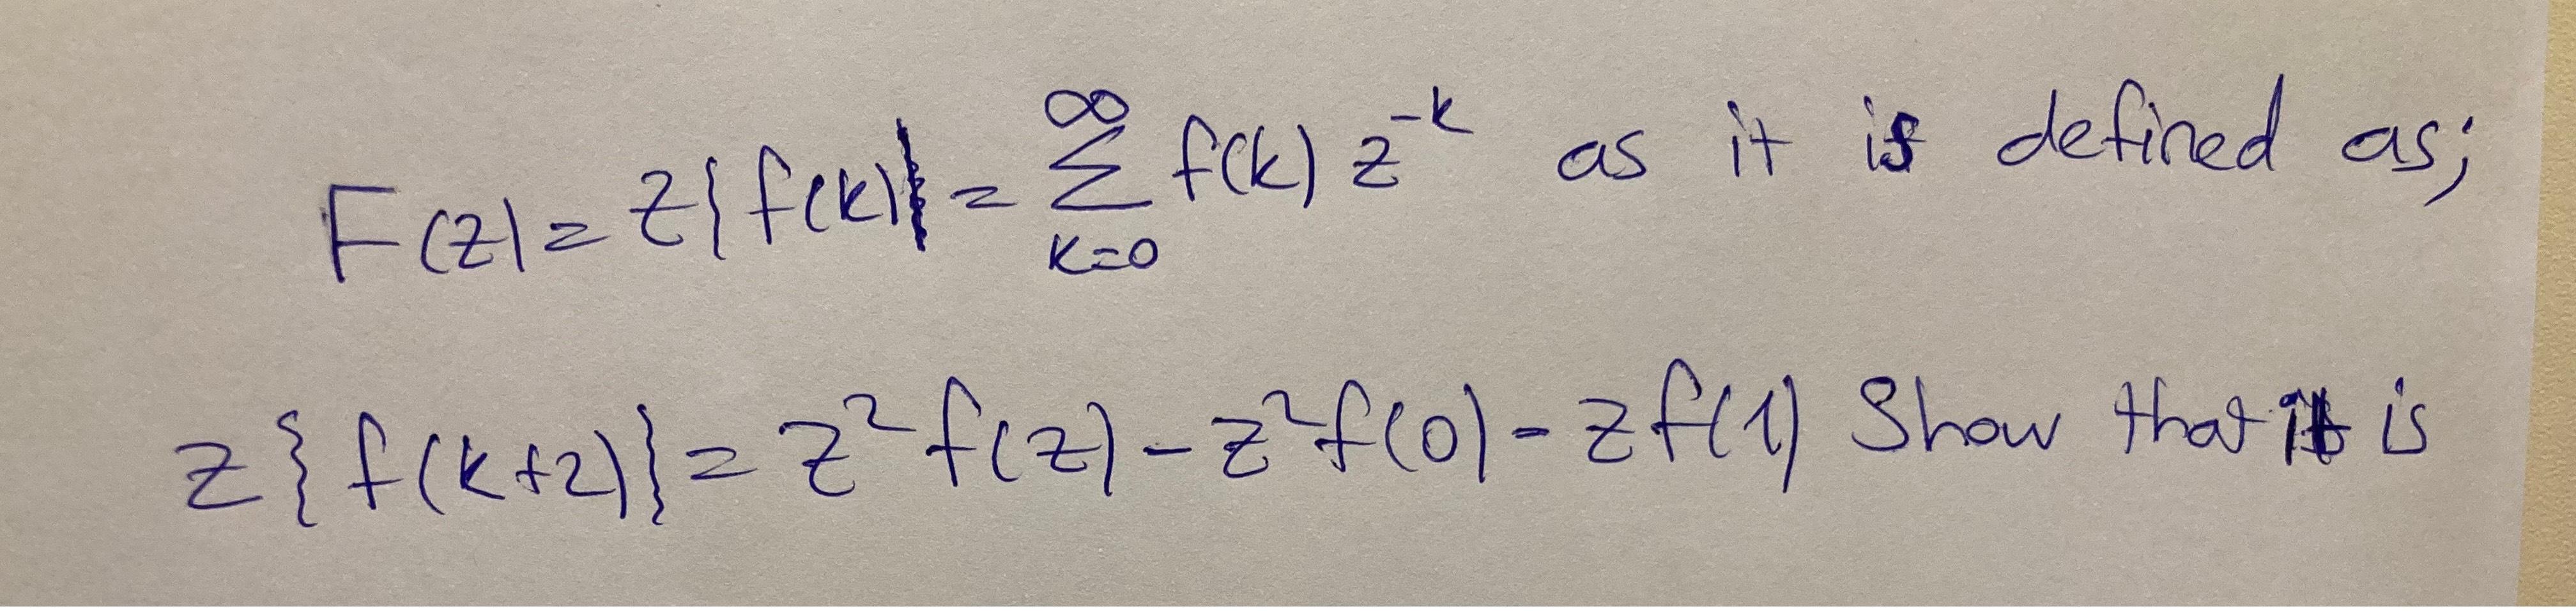 F(z) = Z{f(k)} = ∑_{k=0}^{∞} f(k) z^{-k} as it is defined as;
z{f(k+2)} = z²f(z) - z²f(0) - zf(1) Show that it is